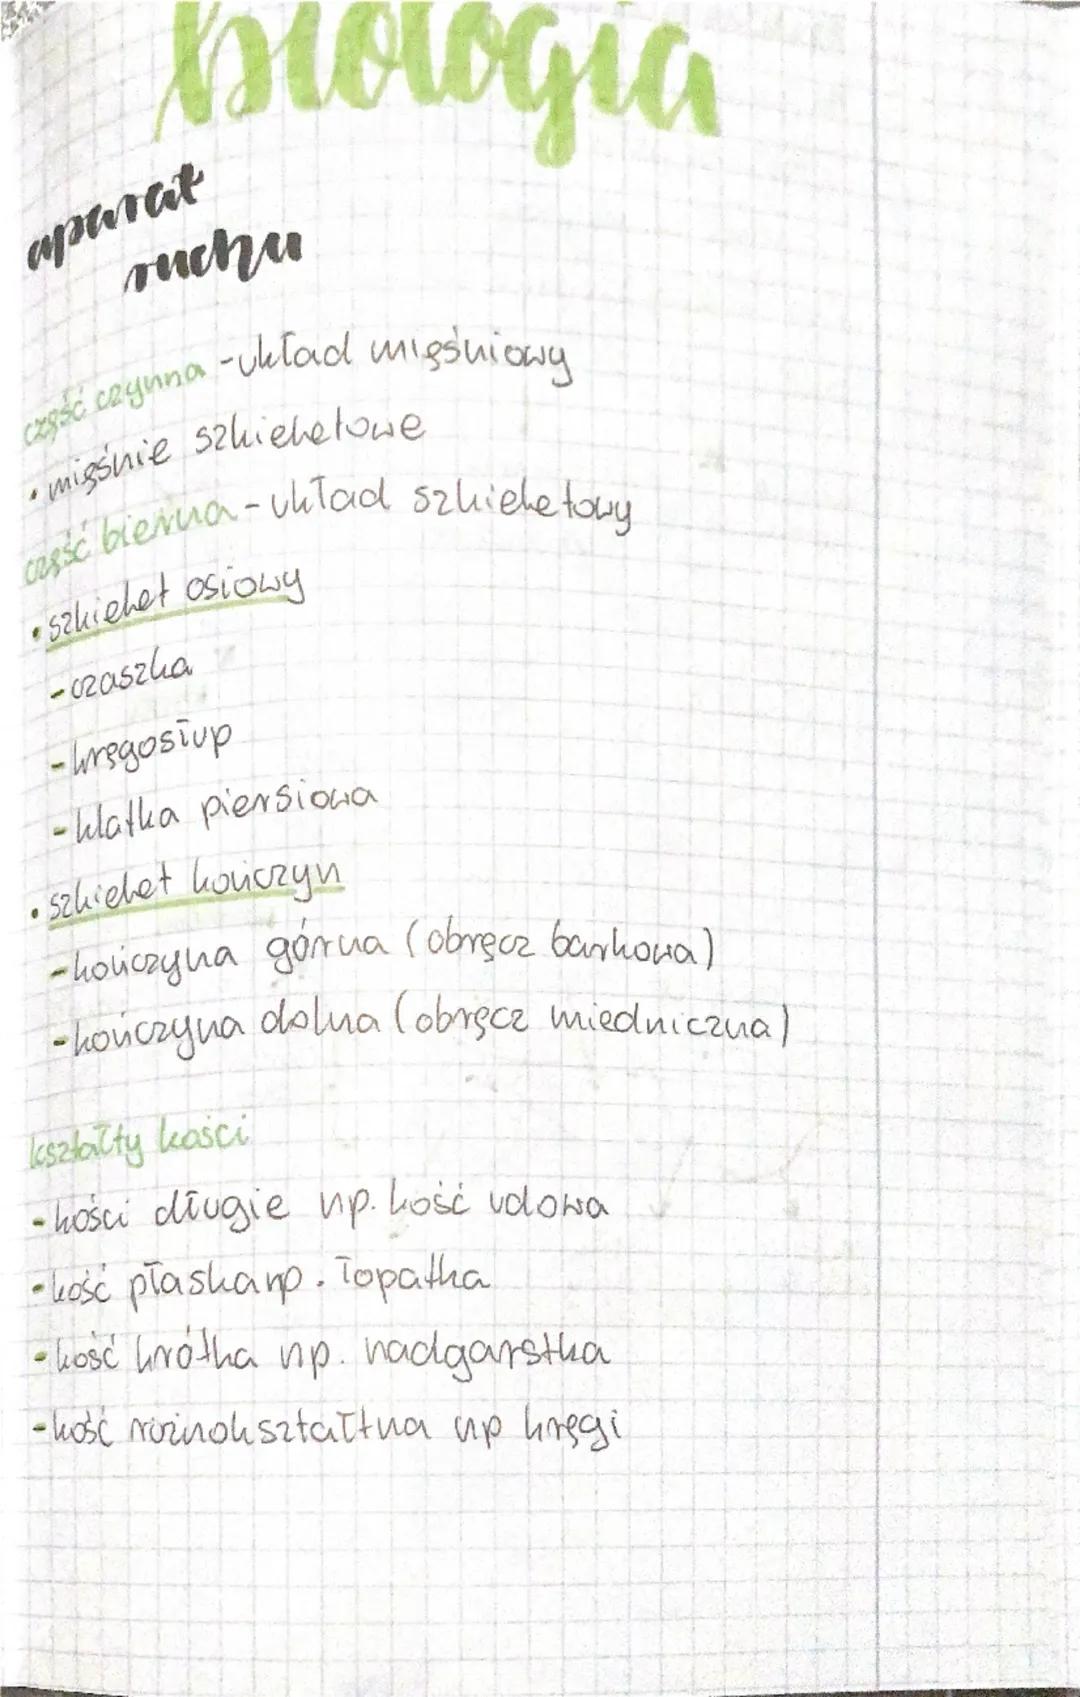 biologia
aparat
ruchu
część czynna - układ mięśniowy
• mięśnie szkieletowe
część bierna - układ szkieletowy
• szkielet osiowy
- czaszka
- kręgosłup
- klatka piersiowa
• szkielet kończyn
- kończyna górna (obręcz barkowa)
- kończyna dolna (obręcz miedniczna)
kształty kości
- kości długie np. kość udowa
- kość płaska np. łopatka
- kość krótka np. nadgarstka
- kość różnokształtna np kręgi